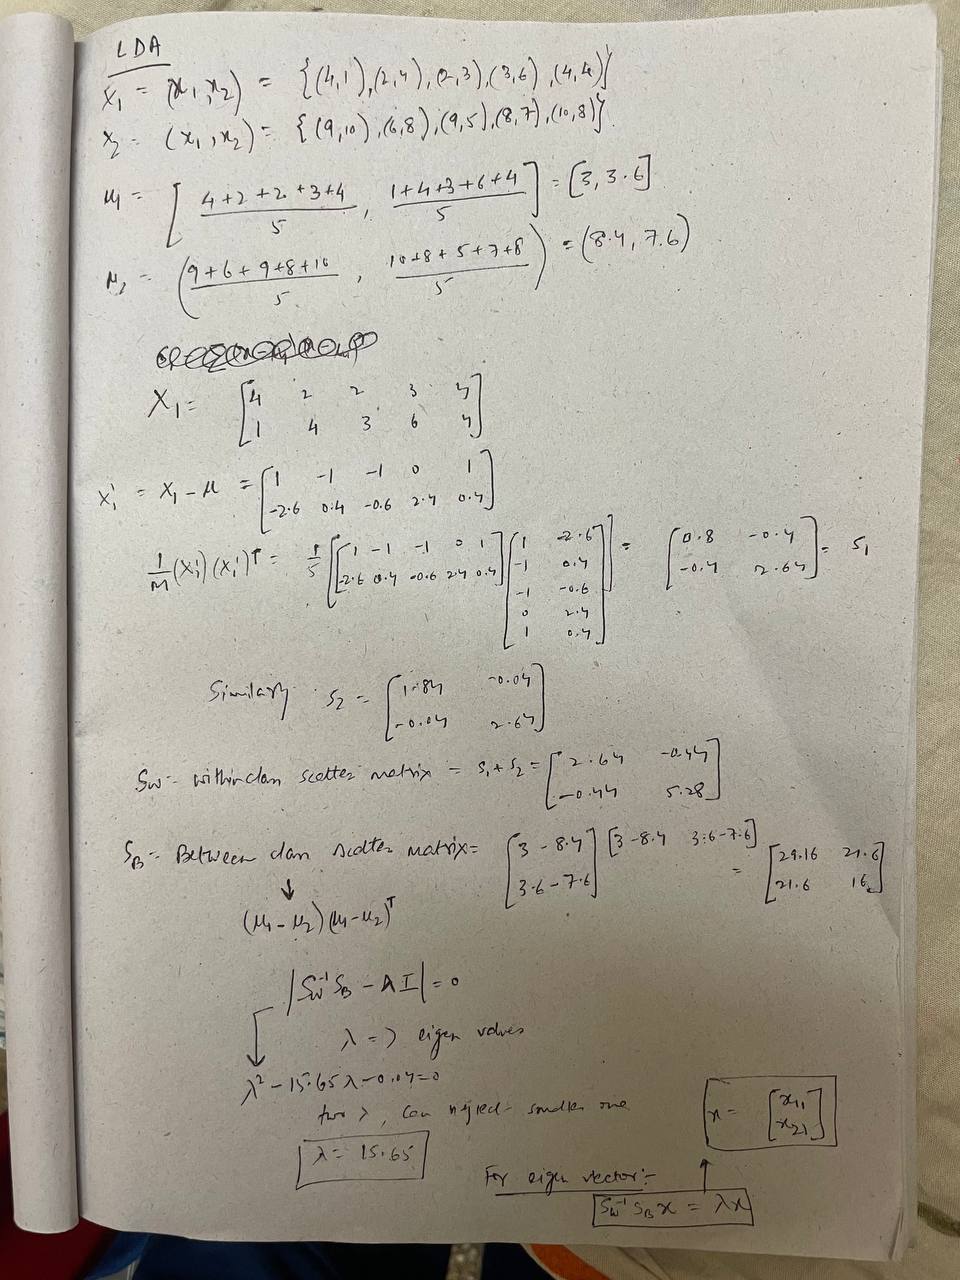 LDA
X₁ = (x₁, x₂) = {(4,1), (2,4), (2,3), (3,6), (4,4)}
X₂ = (x₁, x₂) = {(9,10), (6,8), (9,5), (8,7), (10,8)}
μ₁ = [ (4+2+2+3+4)/5 , (1+4+3+6+4)/5 ] = [3, 3.6]
μ₂ = ( (9+6+9+8+10)/5 , (10+8+5+7+8)/5 ) = (8.4, 7.6)
X₁ = [4 2 2 3 4
1 4 3 6 4]
X₁' = X₁ - μ = [1 -1 -1 0 1
-2.6 0.4 -0.6 2.4 0.4]
1/M (X₁')(X₁')ᵀ = 1/5 [ [1 -1 -1 0 1; -2.6 0.4 -0.6 2.4 0.4] [1 -2.6; -1 0.4; -1 -0.6; 0 2.4; 1 0.4] ] = [0.8 -0.4; -0.4 2.64] = S₁
Similarly S₂ = [1.84 -0.04
-0.04 2.64]
Sw :- within clan scatter matrix = S₁ + S₂ = [2.64 -0.44
-0.44 5.28]
S_B :- Between clan scatter matrix = [3 - 8.4; 3.6 - 7.6] [3-8.4 3.6-7.6] = [29.16 21.6; 21.6 16]
↓
(μ₁ - μ₂)(μ₁ - μ₂)ᵀ
|Sw⁻¹ S_B - λI| = 0
λ => eigen values
λ² - 15.65λ - 0.04 = 0
two λ, can neglect smaller one
λ = 15.65
x = [x₁₁
x₂₁]
For eigen vector :-
Sw⁻¹ S_B x = λx